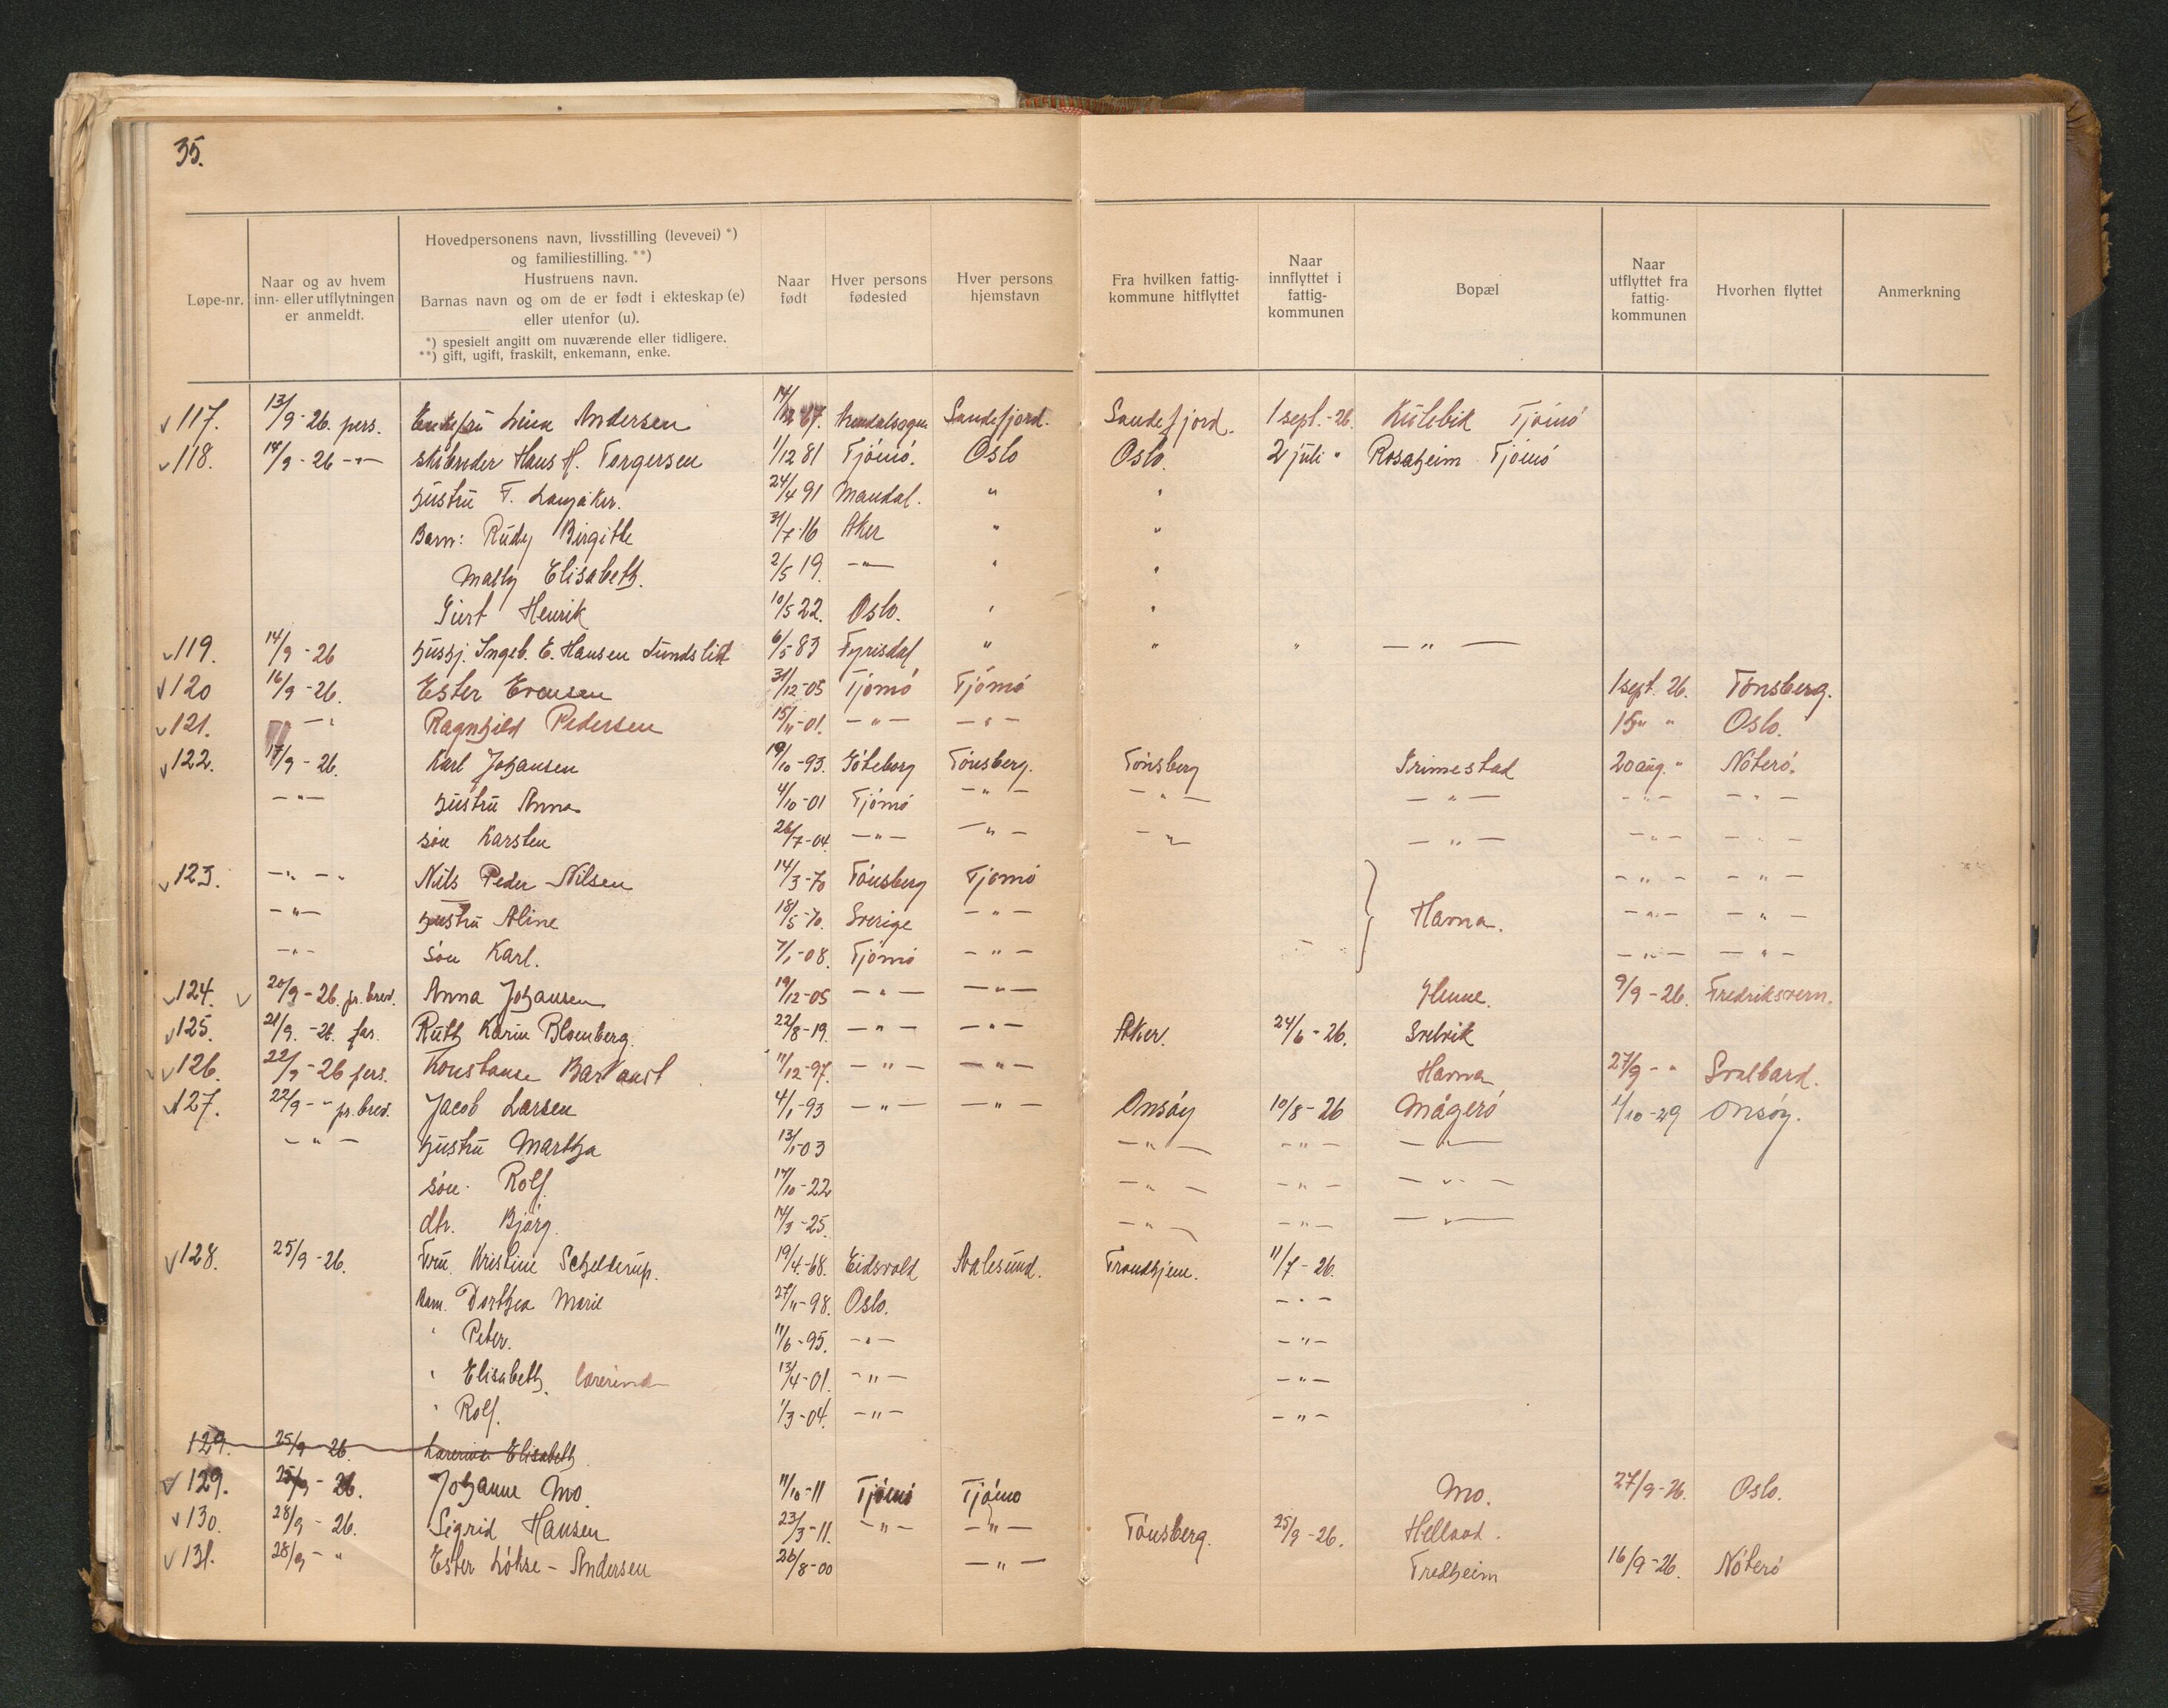 35.
Løpe-nr.
Naar og av hvem inn- eller utflytningen er anmeldt.
Hovedpersonens navn, livsstilling (levevei) *)
og familiestilling. **)
Hustruens navn.
Barnas navn og om de er født i ekteskap (e)
eller utenfor (u).
*) spesielt angitt om nuværende eller tidligere.
**) gift, ugift, fraskilt, enkemann, enke.
Naar født
Hver persons fødested
Hver persons hjemstavn
Fra hvilken fattig-kommune hitflyttet
Naar innflyttet i fattig-kommunen
Bopæl
Naar utflyttet fra fattig-kommunen
Hvorhen flyttet
Anmerkning
117. 13/9-26. pers. Enkefru Lina Andersen 14/12 67. Sandefjord. Sandefjord. 1 sept.-26. Kulebik Tjömö
118. 14/9-26 -"- skibreder Hans H. Torgersen 1/12 81 Tjömö. Oslo Oslo. 2 juli " Rosaheim Tjömö
hustru T. Langåker. 24/4 91 Mandal. " "
Barn: Rudy Birgitte 31/7-16 Aker " "
Mally Elisabeth. 2/5 19. -"- " "
Giert Henrik 10/5 22. Oslo. " "
119. 14/9-26 husbj. Ingeb. E. Hansen Sundslid 6/5 83 Fyrisdal " " " -"-
120 16/9-26. Ester Evensen 31/12-05 Tjömö Tjömö 1 sept. 26. Tönsberg.
121. -" Ragnhild Pedersen 15/11-01. -"- -"- 15" " Oslo.
122. 17/9-26. Karl Johansen 19/10-93. Göteborg Tönsberg. Tönsberg Grimestad 20 aug. " Nöterö.
-"- hustru Anna 4/10-01 Tjömö -"- -"- -"- -"- -"-
sön Karsten 26/7-04 -"- -"- -"- -"- -"- -"-
123. -"-" Nils Peder Nilsen 14/3-70 Tönsberg Tjömö -"- -"-
-"- hustru Aline 18/5-70. Sverige -"- Havna. -"- -"-
-"- sön Karl. 7/1-08. Tjömö -"- -"- -"-
124. 20/9-26. pr. brev. Anna Johansen 19/12-05 -"- -"- Hunne. 9/9-26. Fredriksvern.
125. 21/9.-26. Ruth Karin Blomberg. 22/8-19. -"- -"- Aker. 24/6-26. Svelvik
126. 22/9-26 pers. Konstanse 11/12-97. -"- -"- Havna 27/9-" Svalbard.
127. 22/9-" pr. brev. Jacob Larsen 4/1-93 -"- -"- Onsöy 10/8-26 Mågerö 1/10-29 Onsöy.
-"- hustru Martha 13/1-03 -"- -"- -"-
sön. Rolf 17/10-22 -"- -"- -"-
dtr. Björg. 14/3-25 -"- -"- -"-
128. 25/9-26. Fru. Kristine Schelderup. 19/4-68. Eidsvold Aalesund. Trondhjem. 11/7-26.
Barn. Dorthea Marie 27/11-98. Oslo. -"-
" Peter. 11/6-95. -"- -"-
" Elisabeth. lærerinde 13/4-01. -"- -"-
" Rolf. 1/3-04. -"- -"-
129. 25/9-26. Lærerinde Elisabeth
129. 25/9-26. Johanne Mo. 11/10-11 Tjömö Tjömö Mo. 27/9-26. Oslo.
130. 28/9-26. Sigrid Hansen 23/3-11. -"- -"- Tönsberg. 25/9-26. Helland.
131. 28/9-" Ester Löhse-Andersen 26/8-00 -"- Fredheim 16/9-26. Nöterö